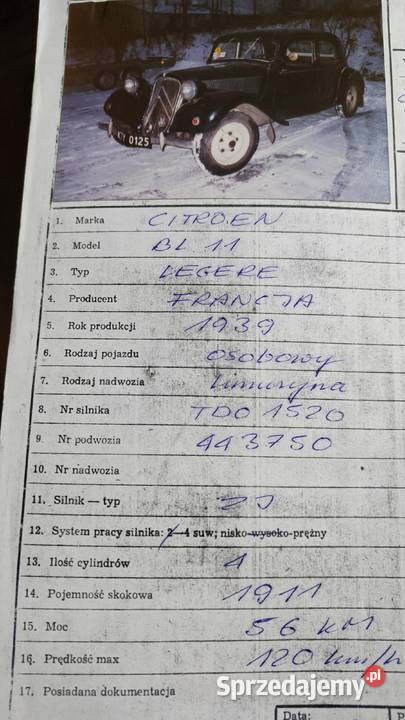 0125
1. Marka CITROEN
2. Model BL 11
3. Typ LEGERE
4. Producent FRANCJA
5. Rok produkcji 1939
6. Rodzaj pojazdu osobowy
7. Rodzaj nadwozia limuzyna
8. Nr silnika TDO 1520
9. Nr podwozia 443750
10. Nr nadwozia
11. Silnik — typ
12. System pracy silnika: 2—4 suw; nisko-wysoko-prężny
13. Ilość cylindrów 4
14. Pojemność skokowa 1911
15. Moc 56 KM
16. Prędkość max 120 km/h
17. Posiadana dokumentacja
Data:
Sprzedajemy.pl